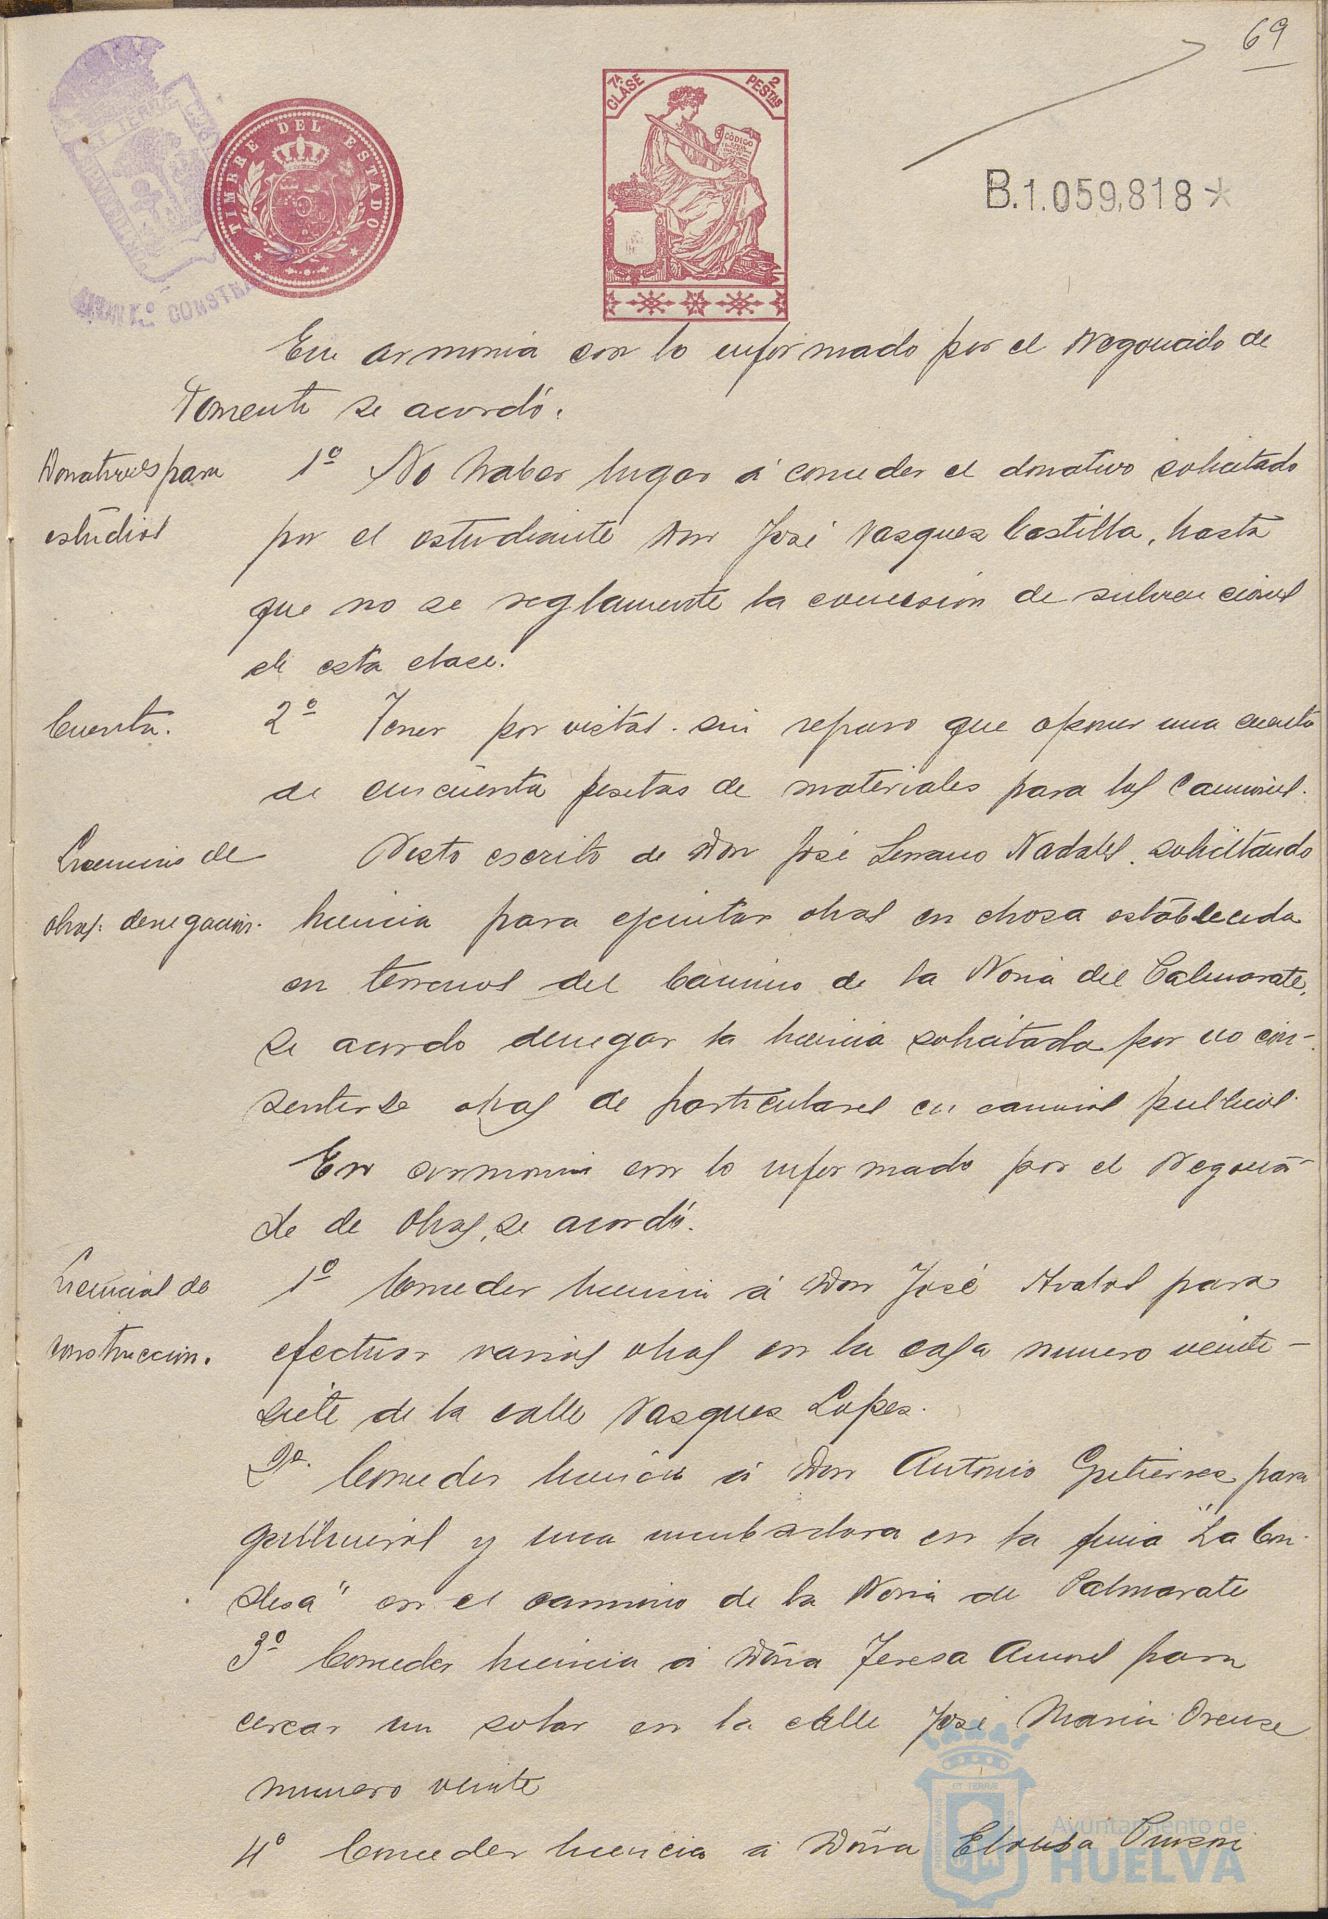 69
7ª CLASE
2 PESTAS
CÓDIGO
TIMBRE DEL ESTADO
B.1.059,818*
En armonia con lo informado por el Negociado de
Fomento se acordó.
Donativos para
estudios
1º No haber lugar á conceder el donativo solicitado
por el estudiante Don José Vasques Castilla, hasta
que no se reglamente la concesión de subvenciones
de esta clase.
Cuenta.
2º Tener por vistas sin reparo que oponer una cuenta
de cincuenta pesetas de materiales para los caminos.
Licencias de
obras denegación.
Visto escrito de Don José Serrano Nadales solicitando
licencia para ejecutar obras en chosa establecida
en terrenos del Camino de la Noria del Calmarate,
se acordo denegar la licencia solicitada por no con-
sentirse obras de particulares en caminos publicos.
En armonia con lo informado por el Negocia-
do de Obras, se acordó.
Licencias de
construccion.
1º Conceder licencia á Don José Avalos para
efectuar varias obras en la casa numero veinte-
siete de la calle Vasques Lopes.
2º Conceder licencia á Don Antonio Gutierres para
gallineros y una incubadora en la finca "La Con-
desa" en el camino de la Noria de Palmarate
3º Conceder licencia á Doña Teresa Amores para
cercar un solar en la calle José Maria Orense
numero veinte
4º Conceder licencia á Doña Eloisa Pinzon
Ayuntamiento de
HUELVA